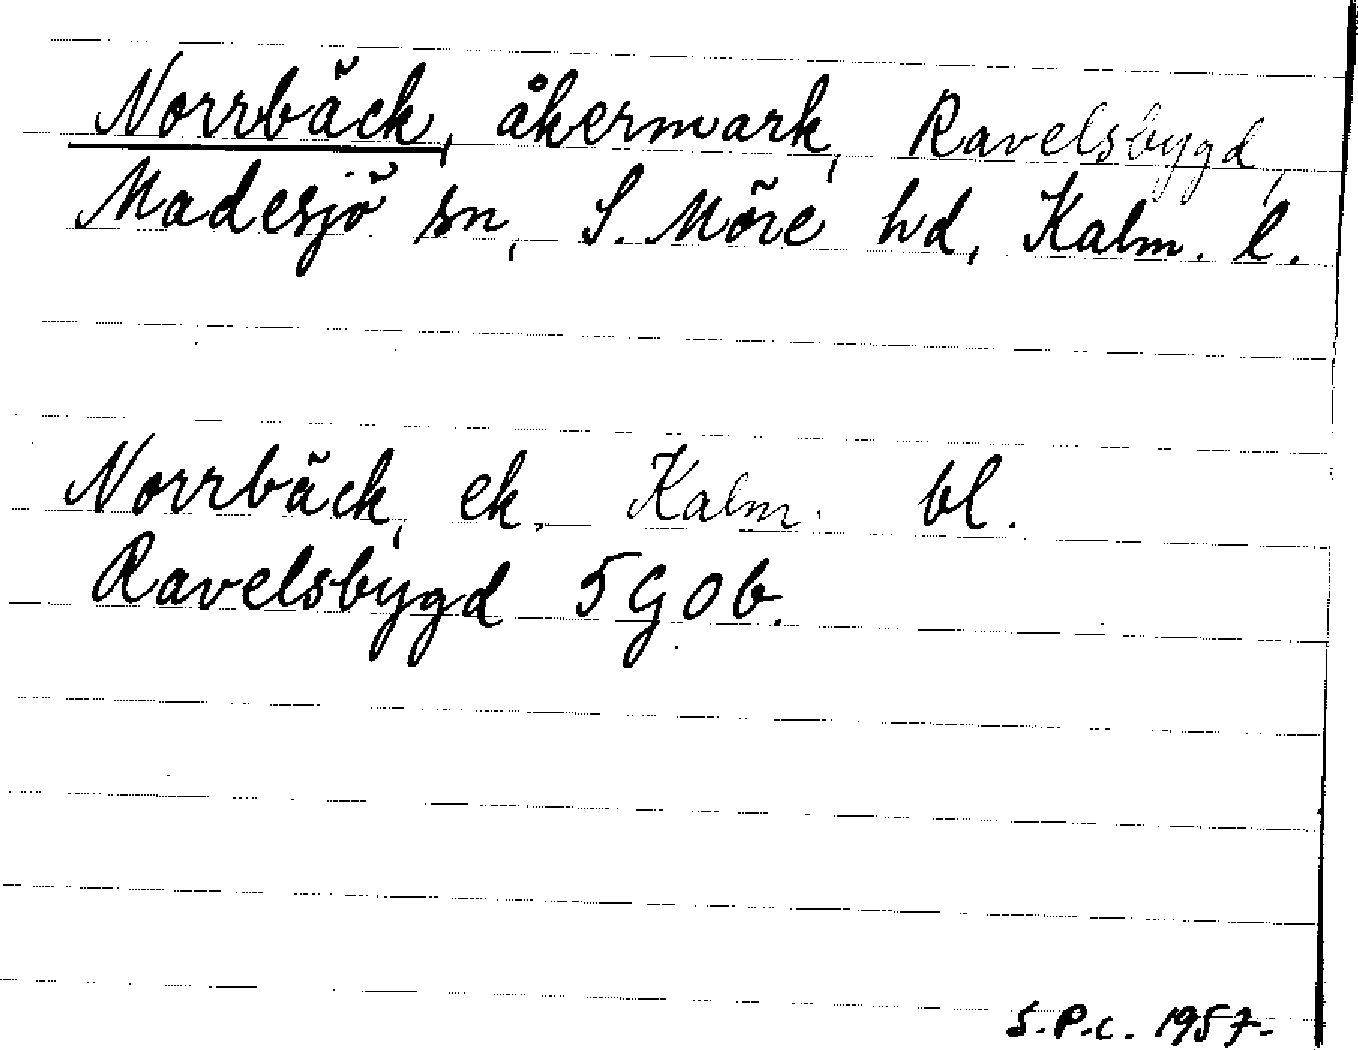 Norrbäck, åkermark, Ravelsbygd,
Madesjö sn, S. Möre hd, Kalm. l.
Norrbäck, ek. Kalm. bl.
Ravelsbygd 5 G 0 b.
S.P.C. 1957.